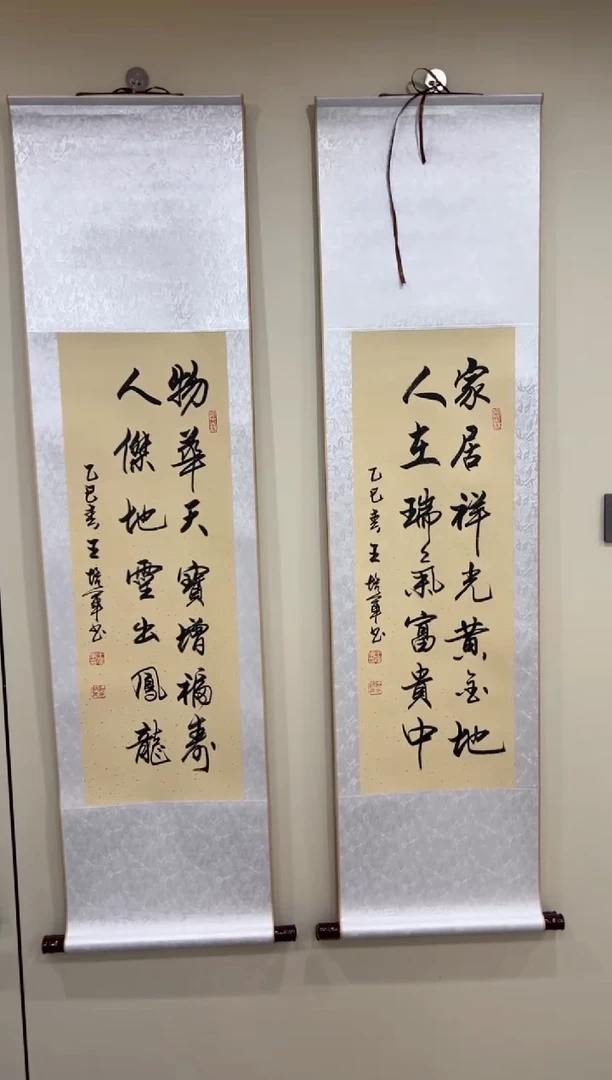 家居祥光黄金地
人在瑞气富貴中
乙巳春王培军书
物華天寶增福壽
人傑地靈出鳳龍
乙巳春王培军书